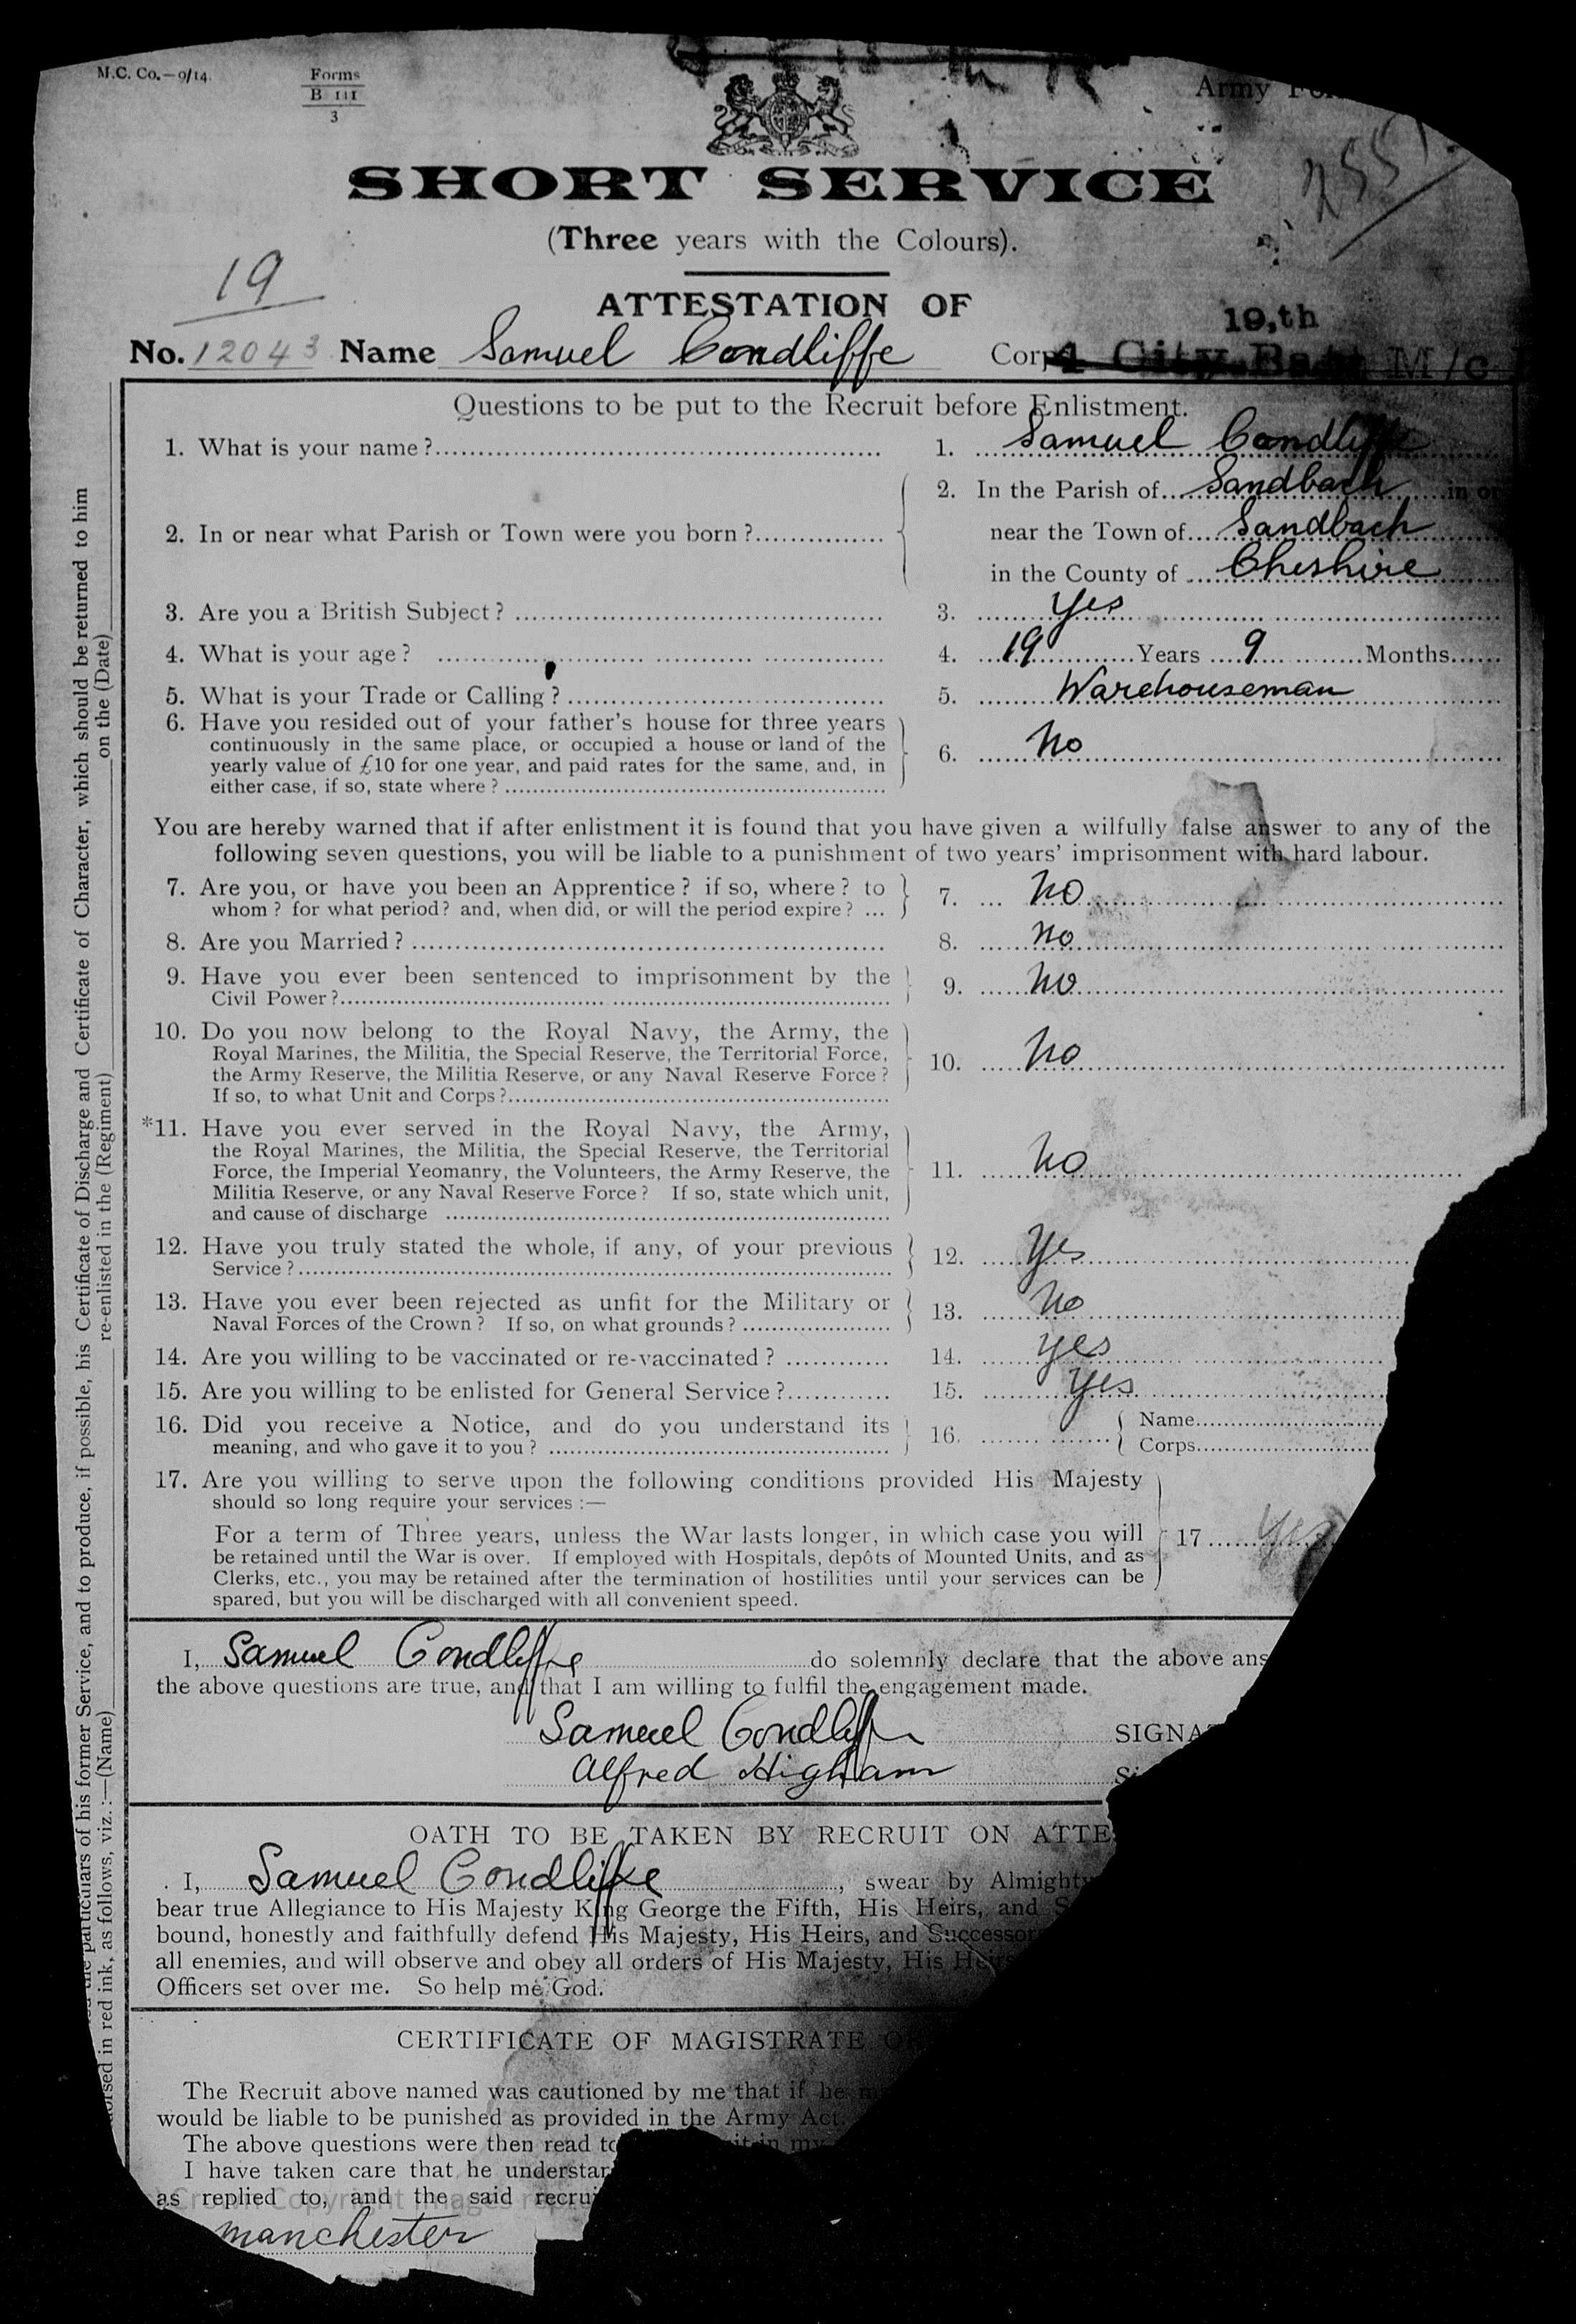 M.C. Co.—9/14.
Forms
B 111
3
Army
SHORT SERVICE
(Three years with the Colours).
19
ATTESTATION OF
19,th
No. 12043 Name Samuel Condliffe Corps 4 City Batt M/c
Questions to be put to the Recruit before Enlistment.
1. What is your name? 1. Samuel Condliffe
2. In or near what Parish or Town were you born? 2. In the Parish of Sandbach in or
near the Town of Sandbach
in the County of Cheshire
3. Are you a British Subject? 3. Yes
4. What is your age? 4. 19 Years 9 Months
5. What is your Trade or Calling? 5. Warehouseman
6. Have you resided out of your father's house for three years
continuously in the same place, or occupied a house or land of the
yearly value of £10 for one year, and paid rates for the same, and, in
either case, if so, state where? 6. No
You are hereby warned that if after enlistment it is found that you have given a wilfully false answer to any of the
following seven questions, you will be liable to a punishment of two years' imprisonment with hard labour.
7. Are you, or have you been an Apprentice? if so, where? to
whom? for what period? and, when did, or will the period expire? ... 7. No
8. Are you Married? 8. No
9. Have you ever been sentenced to imprisonment by the
Civil Power? 9. No
10. Do you now belong to the Royal Navy, the Army, the
Royal Marines, the Militia, the Special Reserve, the Territorial Force,
the Army Reserve, the Militia Reserve, or any Naval Reserve Force?
If so, to what Unit and Corps? 10. No
*11. Have you ever served in the Royal Navy, the Army,
the Royal Marines, the Militia, the Special Reserve, the Territorial
Force, the Imperial Yeomanry, the Volunteers, the Army Reserve, the
Militia Reserve, or any Naval Reserve Force? If so, state which unit,
and cause of discharge 11. No
12. Have you truly stated the whole, if any, of your previous
Service? 12. Yes
13. Have you ever been rejected as unfit for the Military or
Naval Forces of the Crown? If so, on what grounds? 13. No
14. Are you willing to be vaccinated or re-vaccinated? 14. Yes
15. Are you willing to be enlisted for General Service? 15. Yes
16. Did you receive a Notice, and do you understand its
meaning, and who gave it to you? 16. Name
Corps
17. Are you willing to serve upon the following conditions provided His Majesty
should so long require your services :—
For a term of Three years, unless the War lasts longer, in which case you will
be retained until the War is over. If employed with Hospitals, depôts of Mounted Units, and as
Clerks, etc., you may be retained after the termination of hostilities until your services can be
spared, but you will be discharged with all convenient speed. 17 Yes
I, Samuel Condliffe do solemnly declare that the above ans
the above questions are true, and that I am willing to fulfil the engagement made.
Samuel Condliffe SIGNA
Alfred Higham
OATH TO BE TAKEN BY RECRUIT ON ATTE
I, Samuel Condliffe, swear by Almighty
bear true Allegiance to His Majesty King George the Fifth, His Heirs, and S
bound, honestly and faithfully defend His Majesty, His Heirs, and Successor
all enemies, and will observe and obey all orders of His Majesty, His Heirs
Officers set over me. So help me God.
CERTIFICATE OF MAGISTRATE O
The Recruit above named was cautioned by me that if he m
would be liable to be punished as provided in the Army Act.
The above questions were then read to in my
I have taken care that he understan
as replied to, and the said recrui
Crown Copyright images
manchester
particulars of his former Service, and to produce, if possible, his Certificate of Discharge and Certificate of Character, which should be returned to him
in red ink, as follows, viz.:—(Name) re-enlisted in the (Regiment) on the (Date)